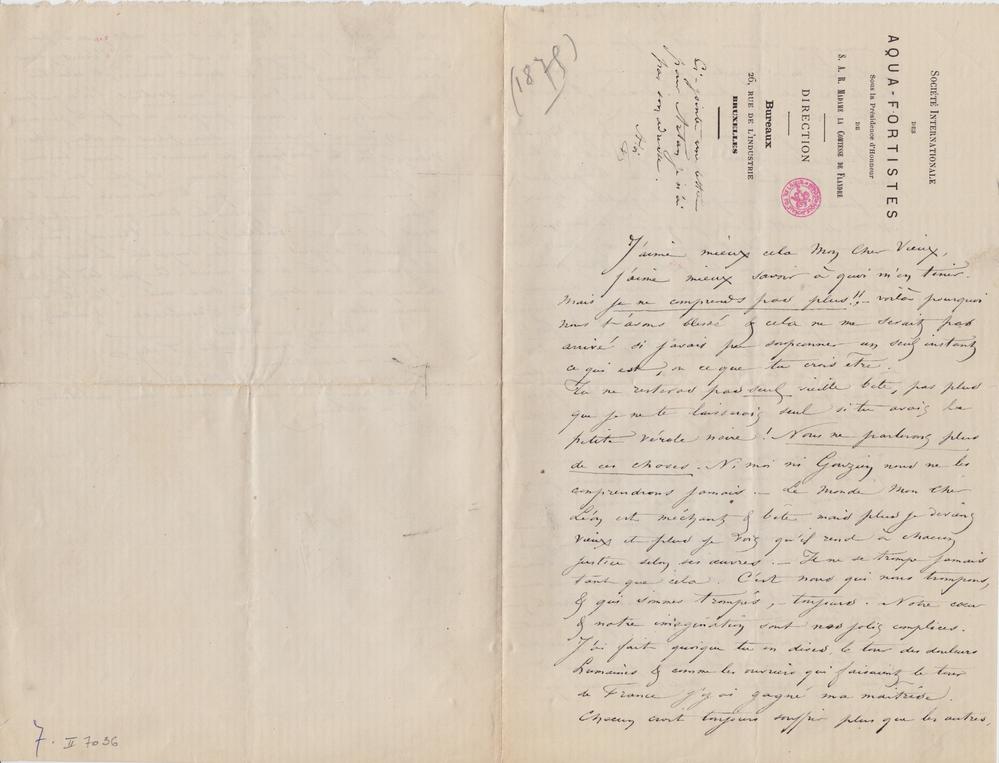 SOCIÉTÉ INTERNATIONALE
DES
AQUA-FORTISTES
Sous la Présidence d'Honneur
DE
S. A. R. MADAME LA COMTESSE DE FLANDRE
DIRECTION
Bureaux
26, RUE DE L'INDUSTRIE
BRUXELLES
Ci-jointe une lettre
pour Artan je n'ai
pas son adresse.
(1875)
J'aime mieux cela Mon Cher Vieux,
j'aime mieux savoir à quoi m'en tenir.
Mais je ne comprends pas plus!! voilà pourquoi
nous t'avons blessé & cela ne me serait pas
arrivé si j'avais pu soupçonner un seul instant
ce qui est, ou ce que tu crois être.
Tu ne resteras pas seul vieille bête, pas plus
que je ne te laisserais seul si tu avais la
petite vérole noire! Nous ne parlerons plus
de ces choses. Ni moi ni Gouzien nous ne les
comprendrons jamais. — Le Monde Mon Cher
Léon est méchant & bête mais plus je deviens
vieux et plus je vois qu'il rend à chacun
justice selon ses œuvres. — Il ne se trompe jamais
tant que cela. C'est nous qui nous trompons,
& qui sommes trompés, — toujours. Notre cœur
& notre imagination sont nos jolis complices.
J'ai fait quoique tu en dises, le tour des douleurs
humaines & comme les ouvriers qui faisaient le tour
de France j'y ai gagné ma maîtrise.
Chacun croit toujours souffrir plus que les autres,
7. II 7036